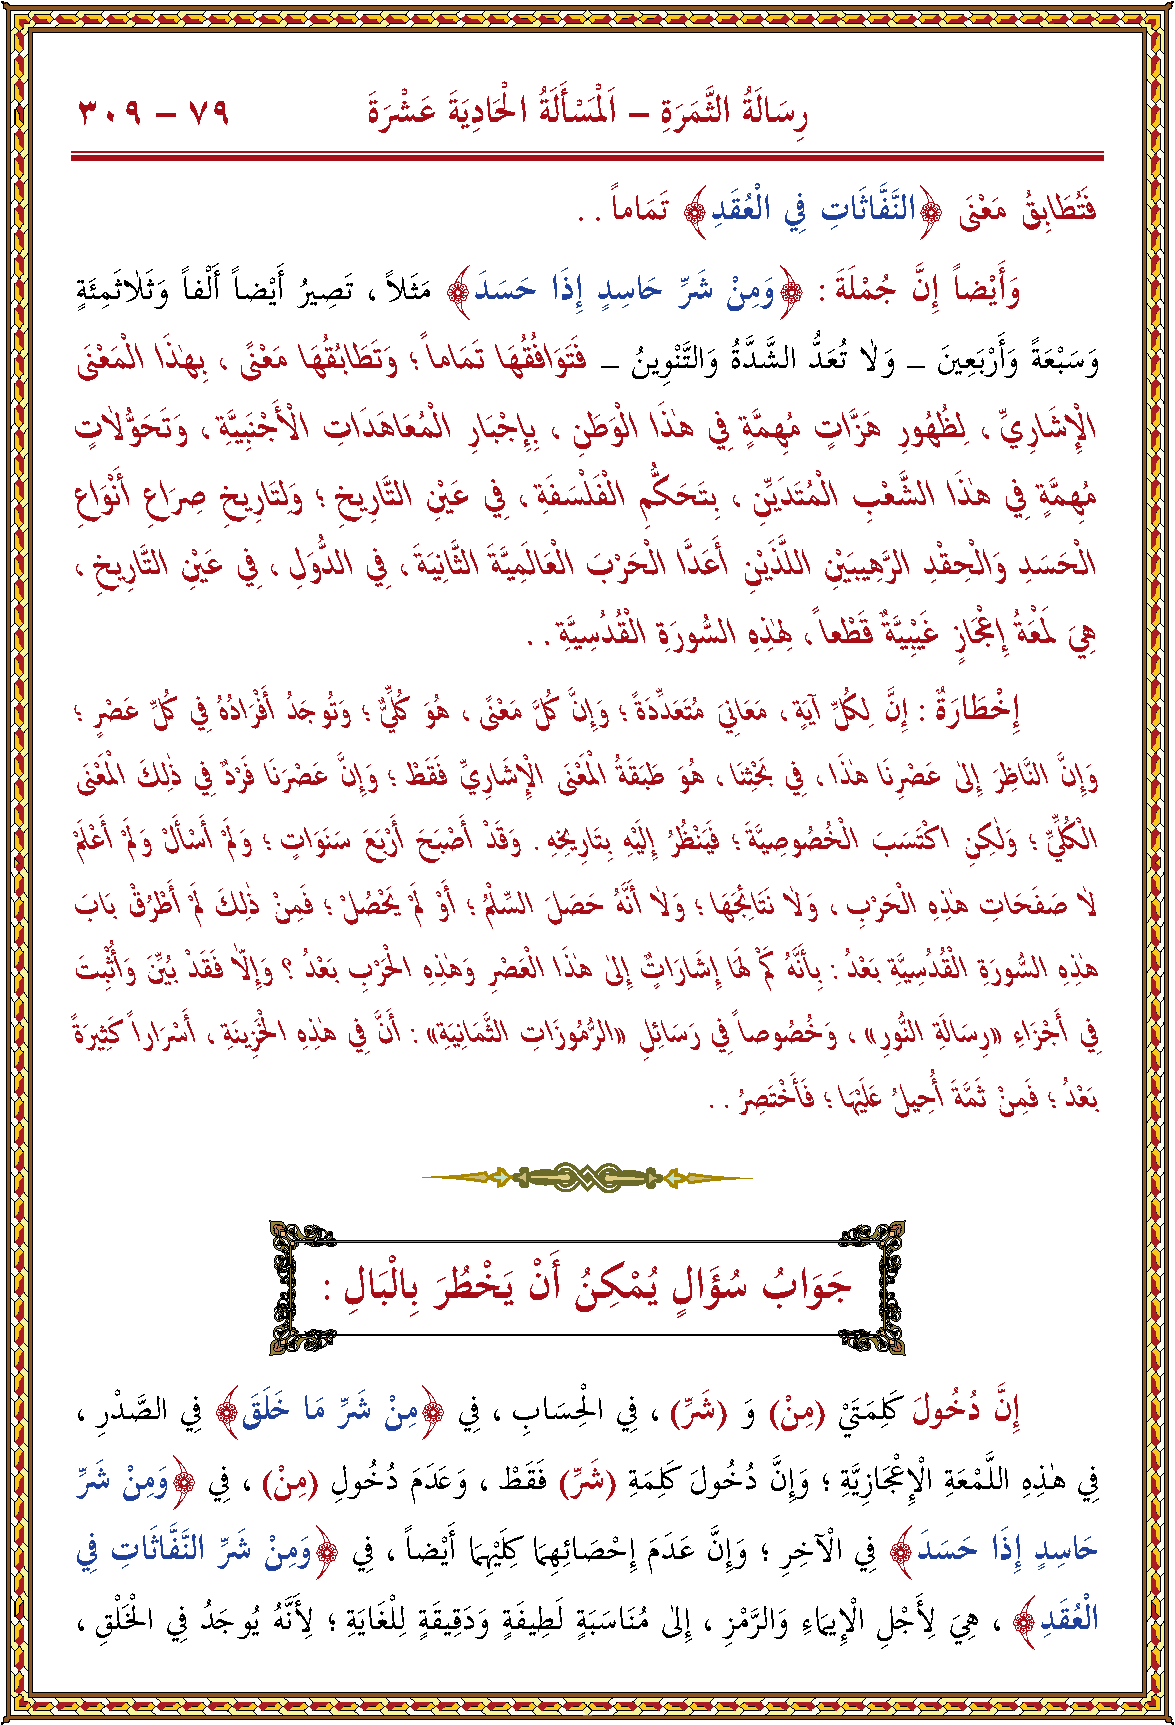 رِسَالَةُ الثَّمَرَةِ – اَلْمَسْأَلَةُ الْحَادِيَةَ عَشْرَةَ ٧٩ – ٣٠٩
فَتُطَابِقُ مَعْنَى ﴿النَّفَّاثَاتِ فِي الْعُقَدِ﴾ تَمَاماً . .
وَأَيْضاً إِنَّ جُمْلَةَ : ﴿وَمِنْ شَرِّ حَاسِدٍ إِذَا حَسَدَ﴾ مَثَلاً ، تَصِيرُ أَيْضاً أَلْفاً وَثَلاٰثَمِئَةٍ
وَسَبْعَةً وَأَرْبَعِينَ – وَلاٰ تُعَدُّ الشَّدَّةُ وَالتَّنْوِينُ – فَتَوَافُقُهَا تَمَاماً ؛ وَتَطَابُقُهَا مَعْنًى ، بِهٰذَا الْمَعْنَى
الْإِشَارِيِّ ، لِظُهُورِ هَزَّاتٍ مُهِمَّةٍ فِي هٰذَا الْوَطَنِ ، بِإِجْبَارِ الْمُعَاهَدَاتِ الْأَجْنَبِيَّةِ ، وَتَحَوُّلاٰتٍ
مُهِمَّةٍ فِي هٰذَا الشَّعْبِ الْمُتَدَيِّنِ ، بِتَحَكُّمِ الْفَلْسَفَةِ ، فِي عَيْنِ التَّارِيخِ ؛ وَلِتَارِيخِ صِرَاعِ أَنْوَاعِ
الْحَسَدِ وَالْحِقْدِ الرَّهِيبَيْنِ اللَّذَيْنِ أَعَدَّا الْحَرْبَ الْعَالَمِيَّةَ الثَّانِيَةَ ، فِي الدُّوَلِ ، فِي عَيْنِ التَّارِيخِ ،
هِيَ لَمْعَةُ إِعْجَازٍ غَيْبِيَّةٌ قَطْعاً ، لِهٰذِهِ السُّورَةِ الْقُدُسِيَّةِ . .
إِخْطَارَةٌ : إِنَّ لِكُلِّ آيَةٍ ، مَعَانِيَ مُتَعَدِّدَةً ؛ وَإِنَّ كُلَّ مَعْنًى ، هُوَ كُلِّيٌّ ؛ وَتُوجَدُ أَفْرَادُهُ فِي كُلِّ عَصْرٍ ؛
وَإِنَّ النَّاظِرَ إِلٰى عَصْرِنَا هٰذَا ، فِي بَحْثِنَا ، هُوَ طَبَقَةُ الْمَعْنَى الْإِشَارِيِّ فَقَطْ ؛ وَإِنَّ عَصْرَنَا فَرْدٌ فِي ذٰلِكَ الْمَعْنَى
الْكُلِّيِّ ؛ وَلٰكِنِ اكْتَسَبَ الْخُصُوصِيَّةَ ؛ فَيَنْظُرُ إِلَيْهِ بِتَارِيخِهِ . وَقَدْ أَصْبَحَ أَرْبَعَ سَنَوَاتٍ ؛ وَلَمْ أَسْأَلْ وَلَمْ أَعْلَمْ
لاٰ صَفَحَاتِ هٰذِهِ الْحَرْبِ ، وَلاٰ نَتَائِجَهَا ؛ وَلاٰ أَنَّهُ حَصَلَ السِّلْمُ ؛ أَوْ لَمْ يَحْصُلْ ؛ فَمِنْ ذٰلِكَ لَمْ أَطْرُقْ بَابَ
هٰذِهِ السُّورَةِ الْقُدُسِيَّةِ بَعْدُ : بِأَنَّهُ كَمْ لَهَا إِشَارَاتٌ إِلىٰ هٰذَا الْعَصْرِ وَهٰذِهِ الْحَرْبِ بَعْدُ ؟ وَإِلاّٰ فَقَدْ بُيِّنَ وَأُثْبِتَ
فِي أَجْزَاءِ «رِسَالَةِ النُّورِ» ، وَخُصُوصاً فِي رَسَائِلِ «الرُّمُوزَاتِ الثَّمَانِيَةِ» : أَنَّ فِي هٰذِهِ الْخَزِينَةِ ، أَسْرَاراً كَثِيرَةً
بَعْدُ ؛ فَمِنْ ثَمَّةَ أُحِيلُ عَلَيْهَا ؛ فَأَخْتَصِرُ . .
جَوَابُ سُؤَالٍ يُمْكِنُ أَنْ يَخْطُرَ بِالْبَالِ :
إِنَّ دُخُولَ كَلِمَتَيْ (مِنْ) وَ (شَرِّ) ، فِي الْحِسَابِ ، فِي ﴿مِنْ شَرِّ مَا خَلَقَ﴾ فِي الصَّدْرِ ،
فِي هٰذِهِ اللَّمْعَةِ الْإِعْجَازِيَّةِ ؛ وَإِنَّ دُخُولَ كَلِمَةِ (شَرِّ) فَقَطْ ، وَعَدَمَ دُخُولِ (مِنْ) ، فِي ﴿وَمِنْ شَرِّ
حَاسِدٍ إِذَا حَسَدَ﴾ فِي الْآخِرِ ؛ وَإِنَّ عَدَمَ إِحْصَائِهِمَا كِلَيْهِمَا أَيْضاً ، فِي ﴿وَمِنْ شَرِّ النَّفَّاثَاتِ فِي
الْعُقَدِ﴾ ، هِيَ لِأَجْلِ الْإِيمَاءِ وَالرَّمْزِ ، إِلىٰ مُنَاسَبَةٍ لَطِيفَةٍ وَدَقِيقَةٍ لِلْغَايَةِ ؛ لِأَنَّهُ يُوجَدُ فِي الْخَلْقِ ،